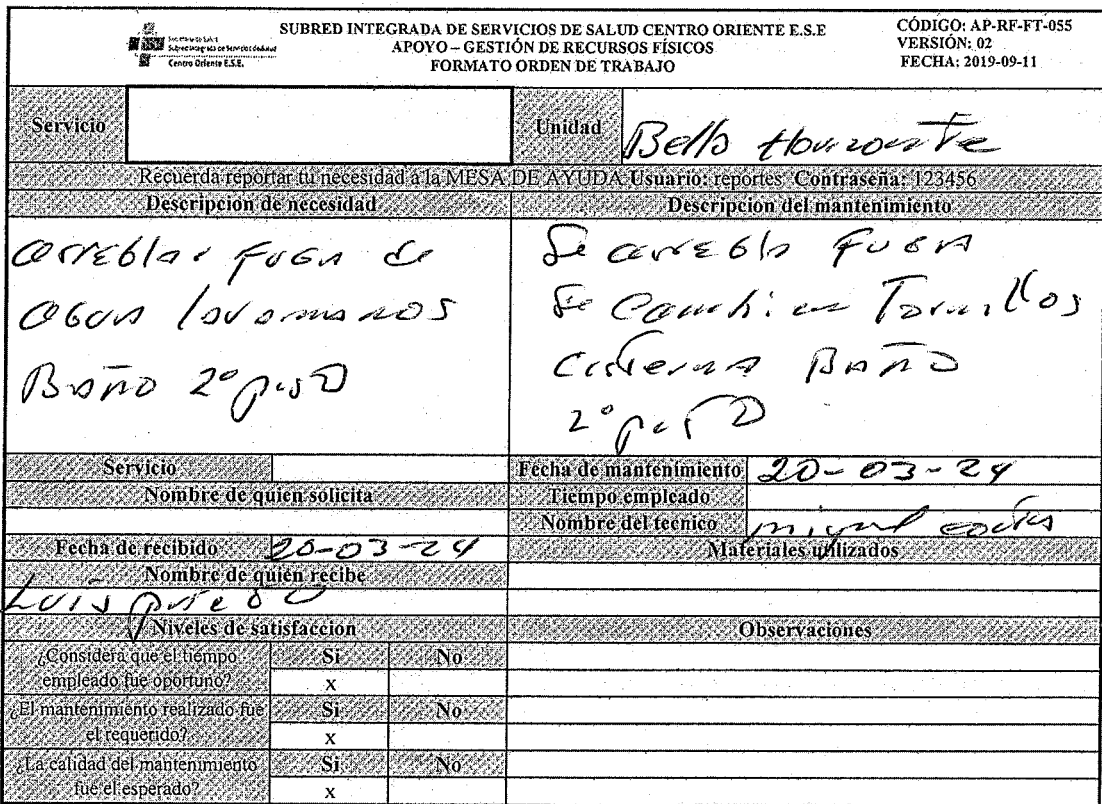 Secretaría de Salud
Subred Integrada de Servicios de Salud
Centro Oriente E.S.E.
SUBRED INTEGRADA DE SERVICIOS DE SALUD CENTRO ORIENTE E.S.E
APOYO – GESTIÓN DE RECURSOS FÍSICOS
FORMATO ORDEN DE TRABAJO
CÓDIGO: AP-RF-FT-055
VERSIÓN: 02
FECHA: 2019-09-11
Servicio
Unidad Bello Horizonte
Recuerda reportar tu necesidad a la MESA DE AYUDA Usuario: reportes Contraseña: 123456
Descripcion de necesidad
arreglar fuga de
agua lavamanos
Baño 2° piso
Descripcion del mantenimiento
Se arregla fuga
Se cambian Tornillos
cisterna Baño
2° piso
Servicio
Nombre de quien solicita
Fecha de recibido 20-03-24
Nombre de quien recibe
Luis
Fecha de mantenimiento 20-03-24
Tiempo empleado
Nombre del tecnico miguel
Materiales utilizados
Niveles de satisfaccion
Observaciones
¿Considera que el tiempo empleado fue oportuno? Si No
x
¿El mantenimiento realizado fue el requerido? Si No
x
¿La calidad del mantenimiento fue el esperado? Si No
x